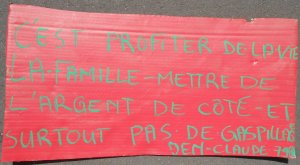 C'EST PROFITER DE LA VIE
LA-FAMILLE-METTRE DE
L'ARGENT DE COTÉ-ET
SURTOUT PAS-DE GASPILLAG
DEN-CLAUDE